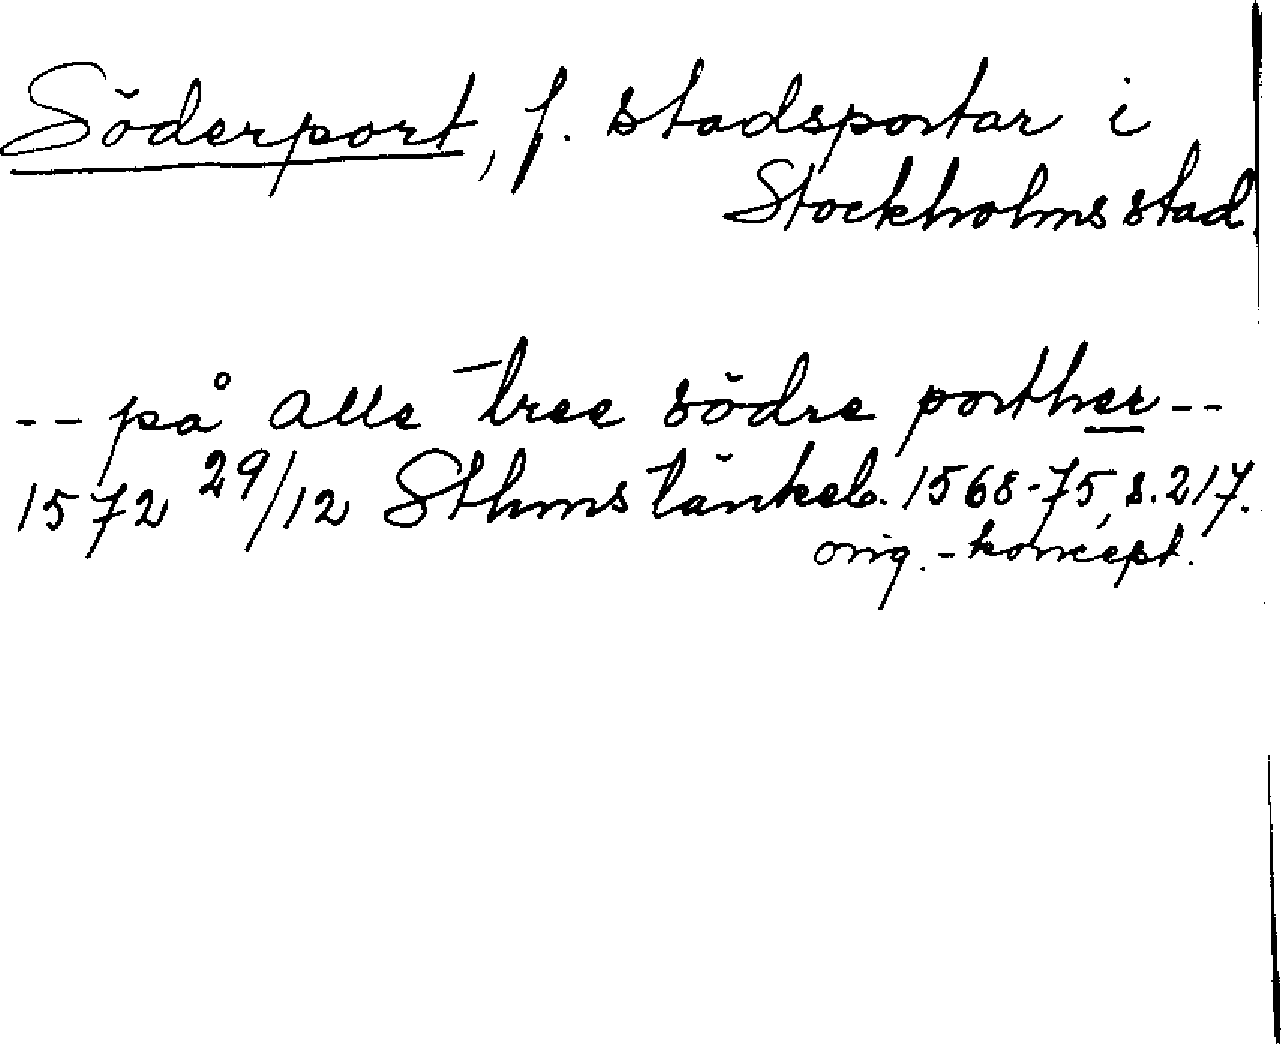 Söderport, f. stadsportar i
Stockholms stad
-- på alle tree södre porther --
1572 29/12 Sthms tänkeb. 1568-75, s. 217.
orig.-koncept.